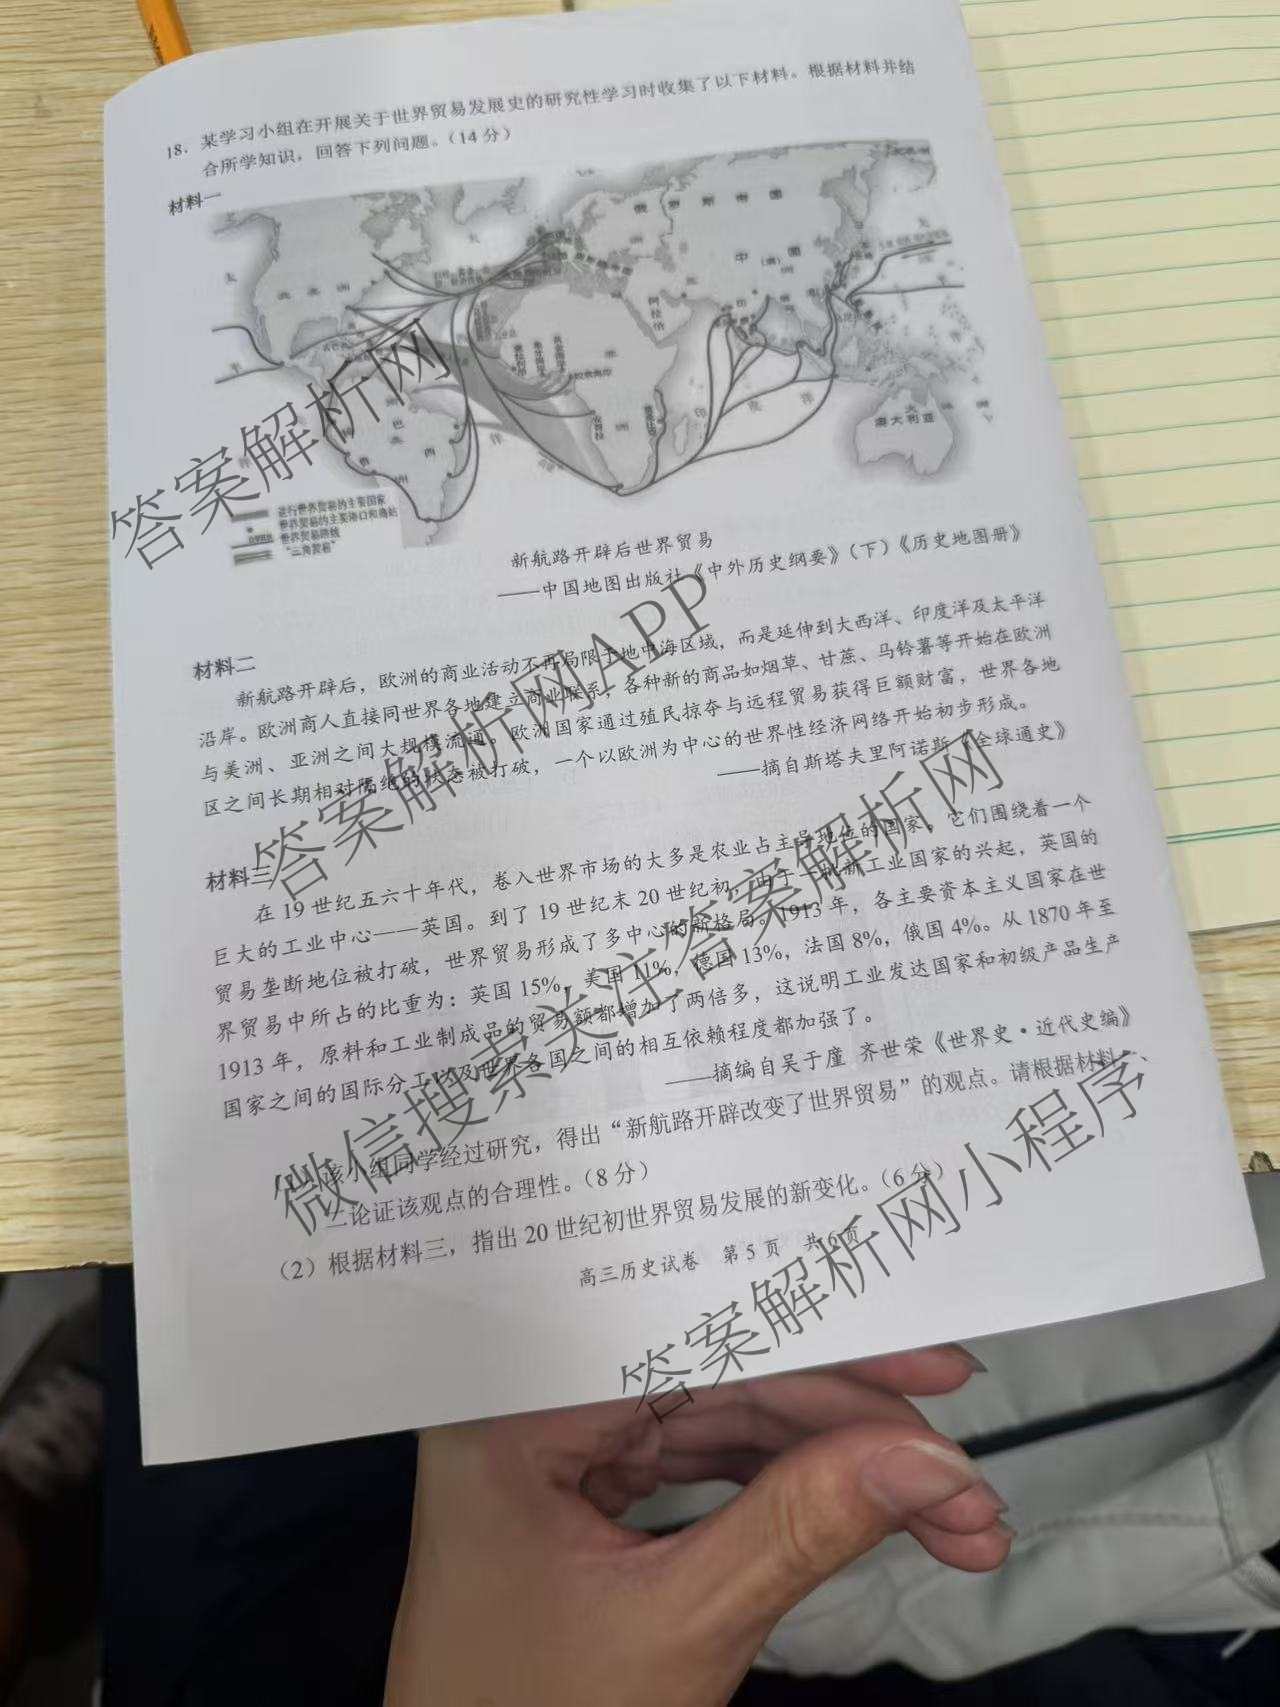 18. 某学习小组在开展关于世界贸易发展史的研究性学习时收集了以下材料。根据材料并结
合所学知识，回答下列问题。（14 分）
材料一
俄 罗 斯 帝 国
中 国
(清)
北 美 洲
阿拉伯
非
洲
印 度 洋
巴
西
澳大利亚
进行世界贸易的主要国家
世界贸易的主要港口和商站
世界贸易路线
“三角贸易”
新航路开辟后世界贸易
——中国地图出版社《中外历史纲要》（下）《历史地图册》
材料二
新航路开辟后，欧洲的商业活动不再局限于地中海区域，而是延伸到大西洋、印度洋及太平洋
沿岸。欧洲商人直接同世界各地建立商业联系，各种新的商品如烟草、甘蔗、马铃薯等开始在欧洲
与美洲、亚洲之间大规模流通。欧洲国家通过殖民掠夺与远程贸易获得巨额财富，世界各地
区之间长期相对隔绝的状态被打破，一个以欧洲为中心的世界性经济网络开始初步形成。
——摘自斯塔夫里阿诺斯《全球通史》
材料三
在 19 世纪五六十年代，卷入世界市场的大多是农业占主导地位的国家，它们围绕着一个
巨大的工业中心——英国。到了 19 世纪末 20 世纪初，由于一批新工业国家的兴起，英国的
贸易垄断地位被打破，世界贸易形成了多中心的新格局。1913 年，各主要资本主义国家在世
界贸易中所占的比重为：英国 15%，美国 11%，德国 13%，法国 8%，俄国 4%。从 1870 年至
1913 年，原料和工业制成品的贸易额都增加了两倍多，这说明工业发达国家和初级产品生产
国家之间的国际分工以及世界各国之间的相互依赖程度都加强了。
——摘编自吴于廑 齐世荣《世界史·近代史编》
该小组同学经过研究，得出“新航路开辟改变了世界贸易”的观点。请根据材料一、
二论证该观点的合理性。（8 分）
（2）根据材料三，指出 20 世纪初世界贸易发展的新变化。（6 分）
高三历史试卷 第 5 页 共 6 页
答案解析网
答案解析网APP
微信搜索关注答案解析网
答案解析网小程序